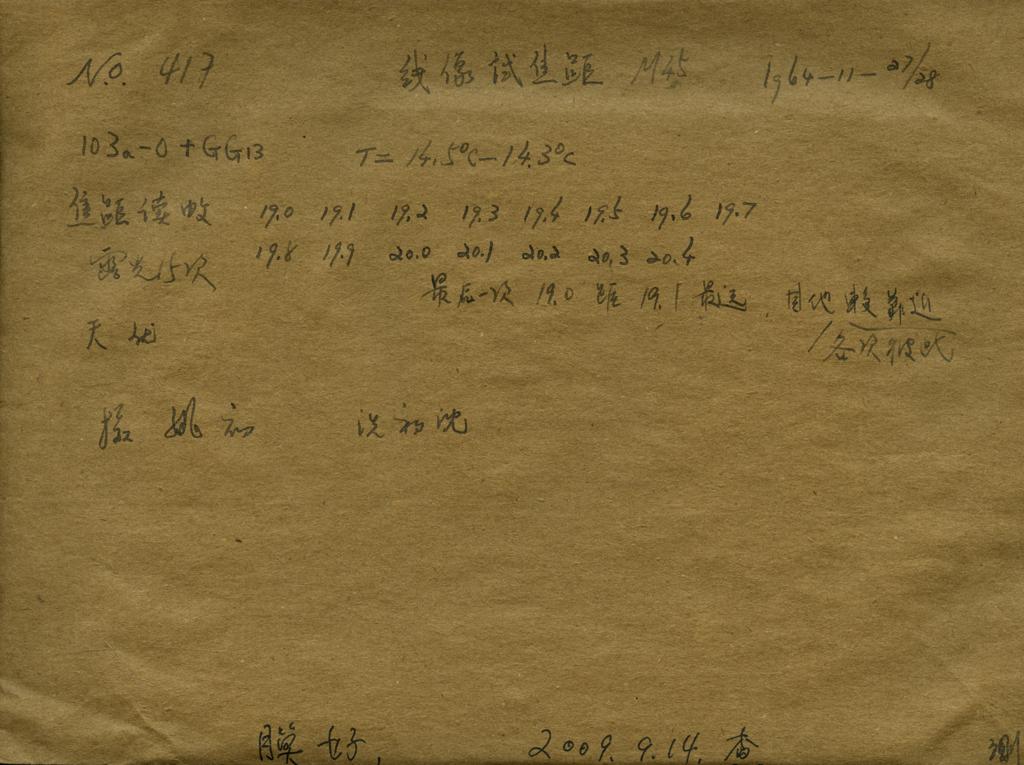 N.O. 417 线像试焦距 M45 1964-11-27/28
103a-O+GG13 T=14.5°C-14.3°C
焦距读数 19.0 19.1 19.2 19.3 19.4 19.5 19.6 19.7
19.8 19.9 20.0 20.1 20.2 20.3 20.4
露光15次
最后一次 19.0 距 19.1 最远, 其他较靠近
各次彼此
天
姚 初 洗 初 沈
膜好, 2009.9.14. 
测